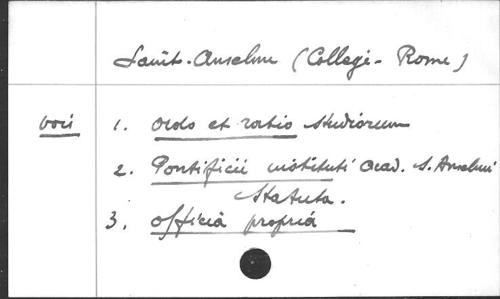 Saint-Anselme (Collège - Rome)
voir 1. Ordo et ratio studiorum
2. Pontificii instituti acad. S. Anselmi
Statuta.
3. Officia propria